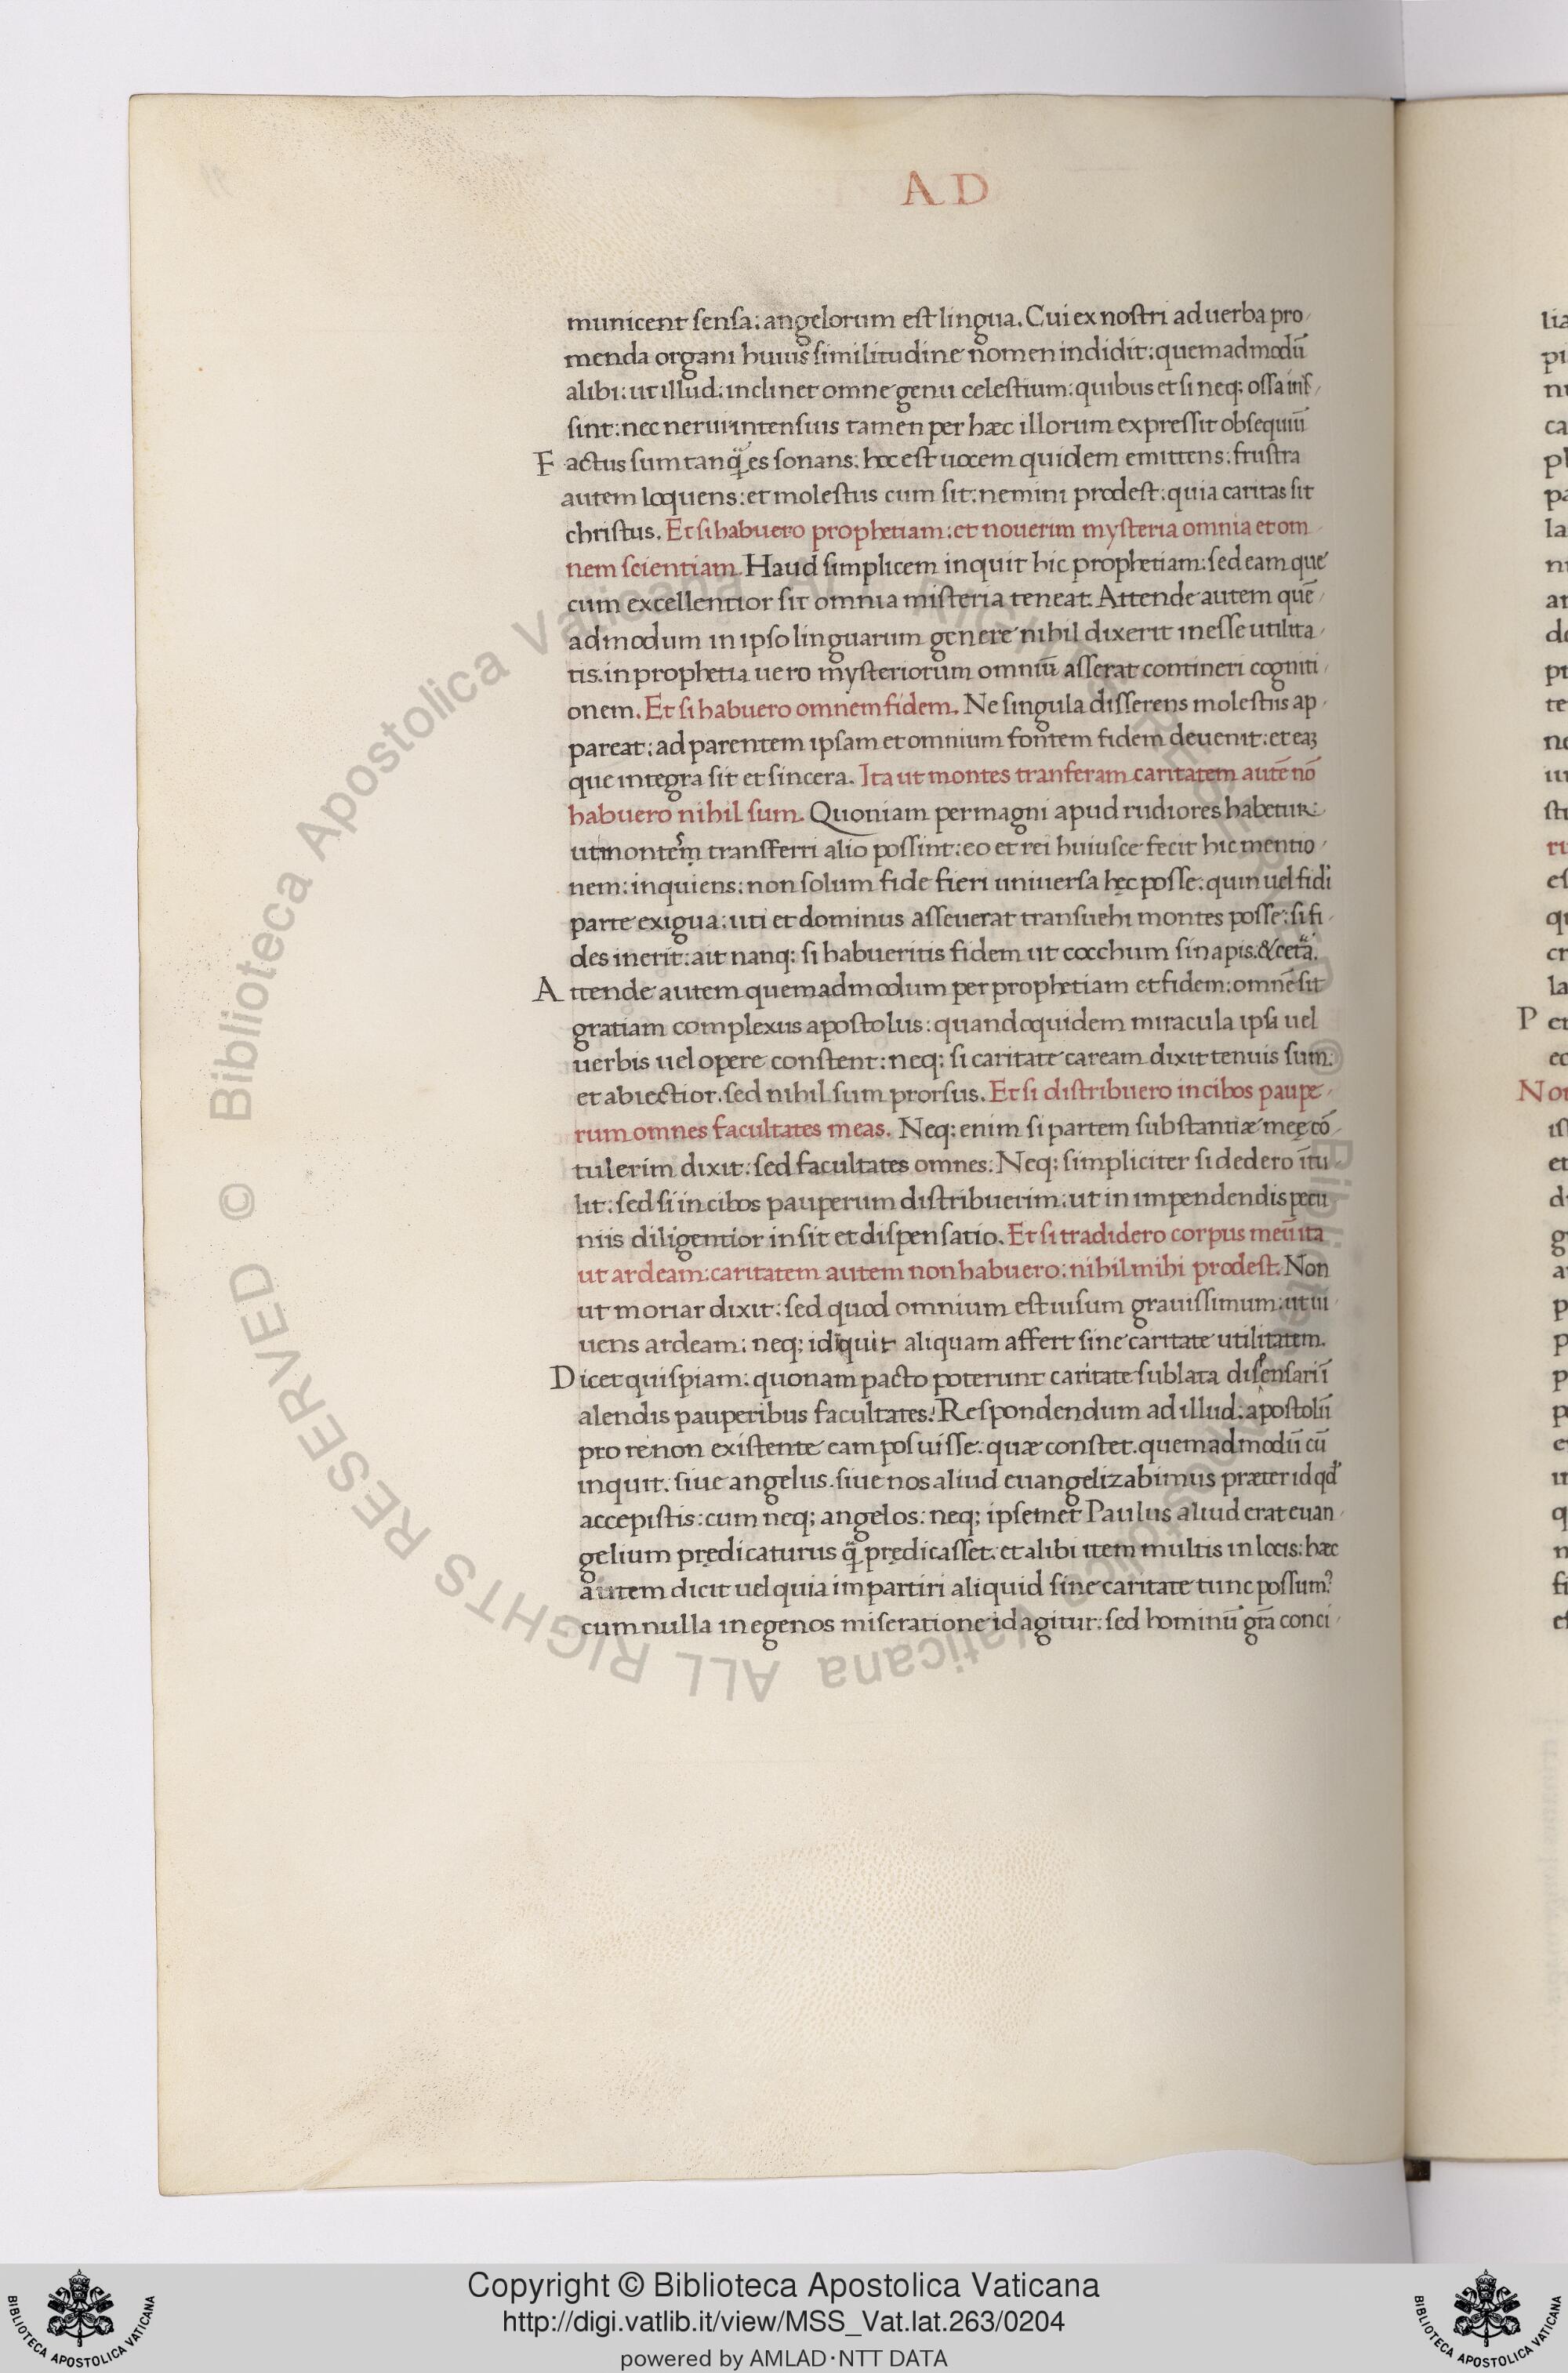 A D
municent sensa: angelorum est lingua. Cui ex nostri ad uerba pro
menda organi huius similitudine nomen indidit: quemadmodū
alibi: ut illud: inclinet omne genu celestium: quibus et si neq; ossa inf
sint: nec nerui intensuis tamen per hæc illorum expressit obsequiū
Factus sum tanq̄ es sonans: hoc est uocem quidem emittens: frustra
autem loquens: et molestus cum sit: nemini prodest: quia caritas sit
christus. Et si habuero prophetiam: et nouerim mysteria omnia et om
nem scientiam. Haud simplicem inquit hic prophetiam: sed eam que
cum excellentior sit omnia misteria teneat. Attende autem quē
admodum in ipso linguarum genere nihil dixerit inesse utilita
tis. in prophetia uero mysteriorum omniū asserat contineri cogniti
onem. Et si habuero omnem fidem. Ne singula disserens molestus ap
pareat: ad parentem ipsam et omnium fontem fidem deuenit: et eaʒ
que integra sit et sincera. Ita ut montes tranferam caritatem autē nō
habuero nihil sum. Quoniam permagni apud rudiores habetur:
ut montem transferri alio possint: eo et rei huiusce fecit hic mentio
nem: inquiens: non solum fide fieri uniuersa hęc posse: quin uel fidi
parte exigua: uti et dominus asseuerat transuehi montes posse: si fi
des inerit: ait nanq: si habueritis fidem ut cocchum sinapis. & cetā.
Attende autem quemadmodum per prophetiam et fidem: omnē sit
gratiam complexus apostolus: quandoquidem miracula ipsa uel
uerbis uel opere constent: neq; si caritate caream dixit tenuis sum.
et abiectior. sed nihil sum prorsus. Et si distribuero in cibos paupe
rum omnes facultates meas. Neq; enim si partem substantiæ meę cō
tulerim dixit: sed facultates omnes: Neq; simpliciter si dedero ītu
lit: sed si in cibos pauperum distribuerim: ut in impendendis pecu
niis diligentior insit et dispensatio. Et si tradidero corpus meū ita
ut ardeam: caritatem autem non habuero: nihil mihi prodest. Non
ut moriar dixit: sed quod omnium est uisum grauissimum: ut ui
uens ardeam: neq; id īquit aliquam affert sine caritate utilitatem.
Dicet quispiam: quonam pacto poterunt caritate sublata dispensari ī
alendis pauperibus facultates? Respondendum ad illud: apostolū
pro re non existente eam posuisse: quæ constet. quemadmodū cū
inquit. siue angelus. siue nos aliud euangelizabimus præter id qd
accepistis: cum neq; angelos: neq; ipsemet Paulus aliud erat euan
gelium prędicaturus q̄ prędicasset: et alibi item multis in locis: hæc
autem dicit uel quia impartiri aliquid sine caritate tunc possum?
cum nulla in egenos miseratione id agitur: sed hominū grā conci
Copyright © Biblioteca Apostolica Vaticana
http://digi.vatlib.it/view/MSS_Vat.lat.263/0204
powered by AMLAD·NTT DATA